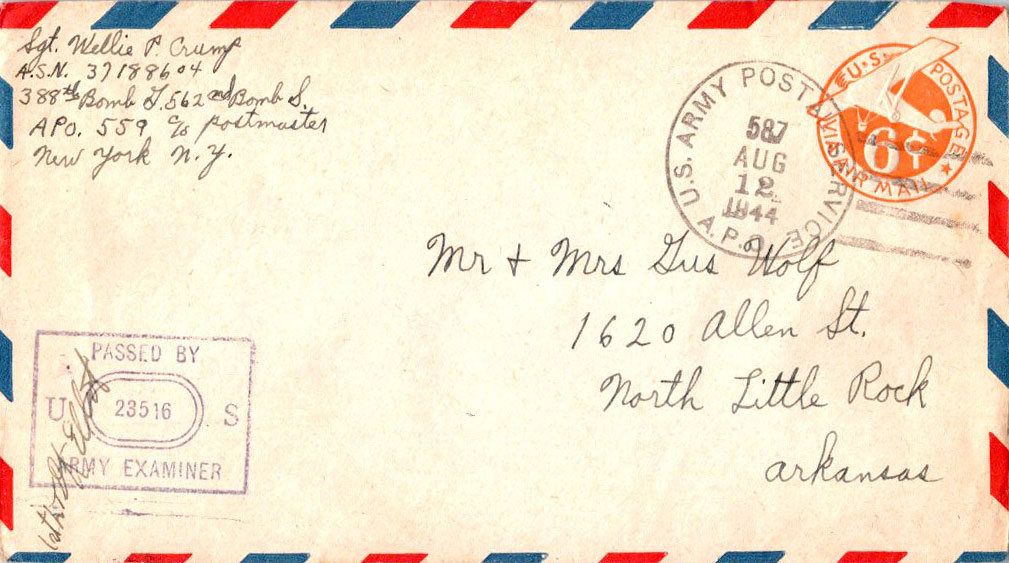 Sgt. Wellie P. Crump
A.S.N. 37188604
388th Bomb G. 562nd Bomb S.
APO. 559 c/o Postmaster
New York N.Y.
U.S. ARMY POSTAL SERVICE
A.P.O.
587
AUG
12
1944
U.S. POSTAGE
6¢
VIA AIR MAIL
Mr + Mrs Gus Wolf
1620 Allen St.
North Little Rock
Arkansas
PASSED BY
U 23516 S
ARMY EXAMINER